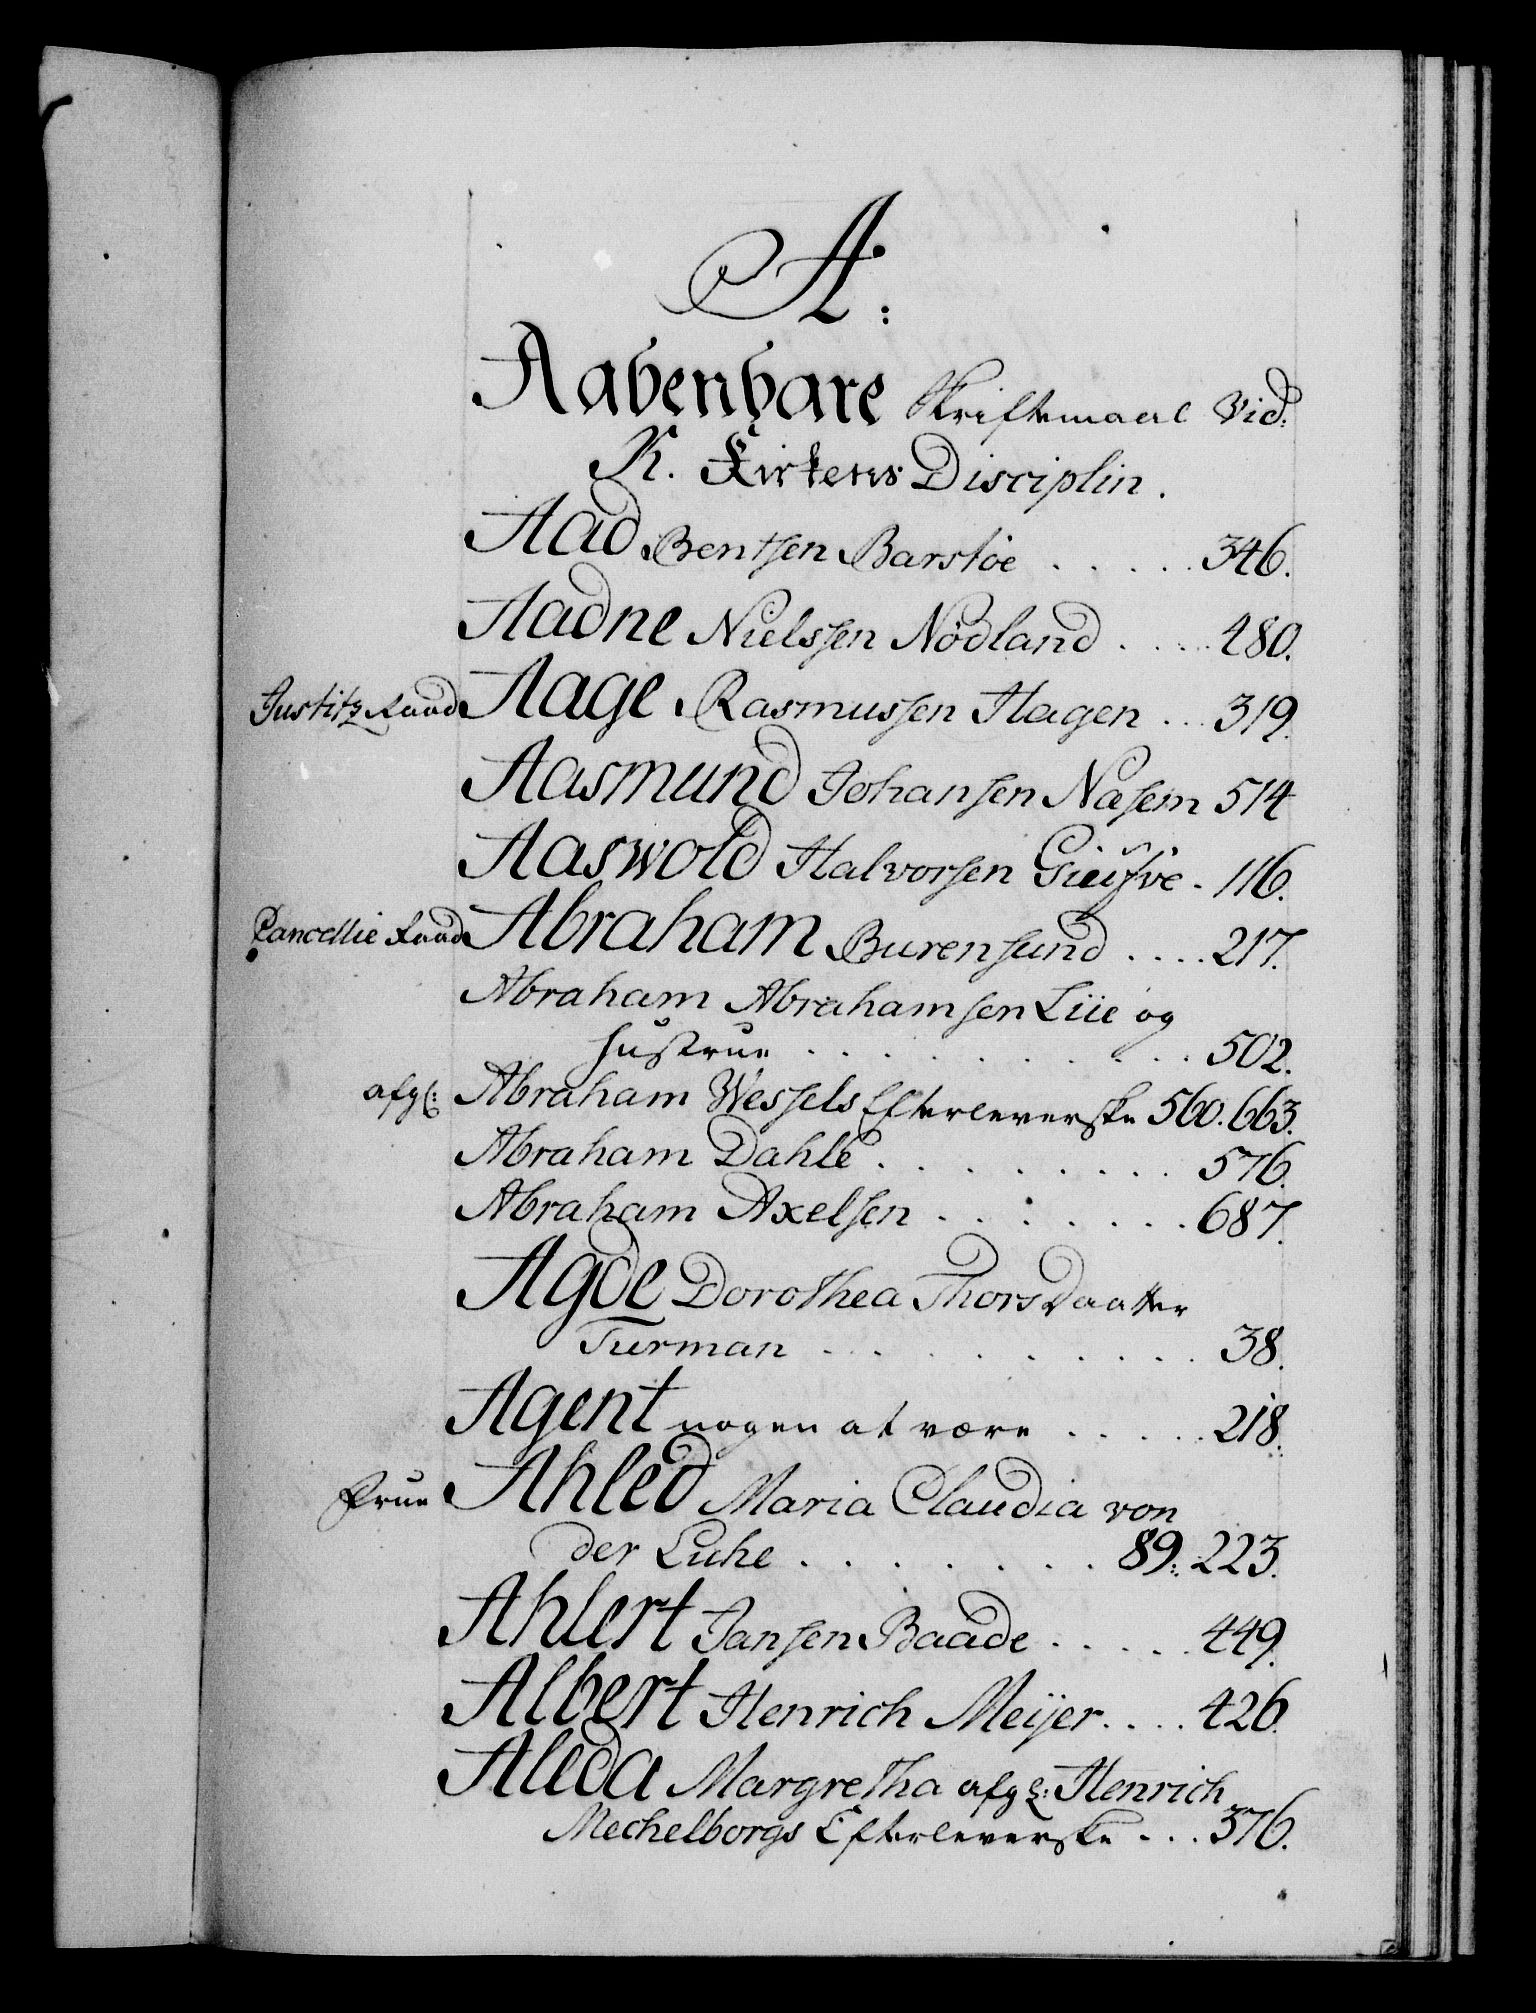 A:
Aabenbare Skriftemaal Vid:
K. Kirkens Disciplin.
Aad Bentsen Barstöe . . . . . 346.
Aadne Nielssen Nödland . . . . 480.
Justitz Raad Aage Rasmussen Hagen . . . 319.
Aasmund Johansen Næsem 514
Aaswold Halvorsen . 116.
Cancellie Raad Abraham Burensund . . . . 217.
Abraham Abrahamsen Liie og
Hustrue . . . . . . . . 502.
afgl: Abraham Wessels Efterleverske 560. 663.
Abraham Dahle . . . . . . . . 576.
Abraham Axelsen . . . . . . . 687.
Agde Dorothea Thors Daatter
Turman . . . . . . . . . 38.
Agent nogen at være . . . . . 218.
Frue Ahled Maria Claudia von
der Luhe . . . . . . . 89. 223.
Ahlert Jansen Baade . . . . . 449.
Albert Henrich Meijer . . . . 426.
Aleda Margretha afgl: Henrich
Mechelborgs Efterleverske . . . 376.